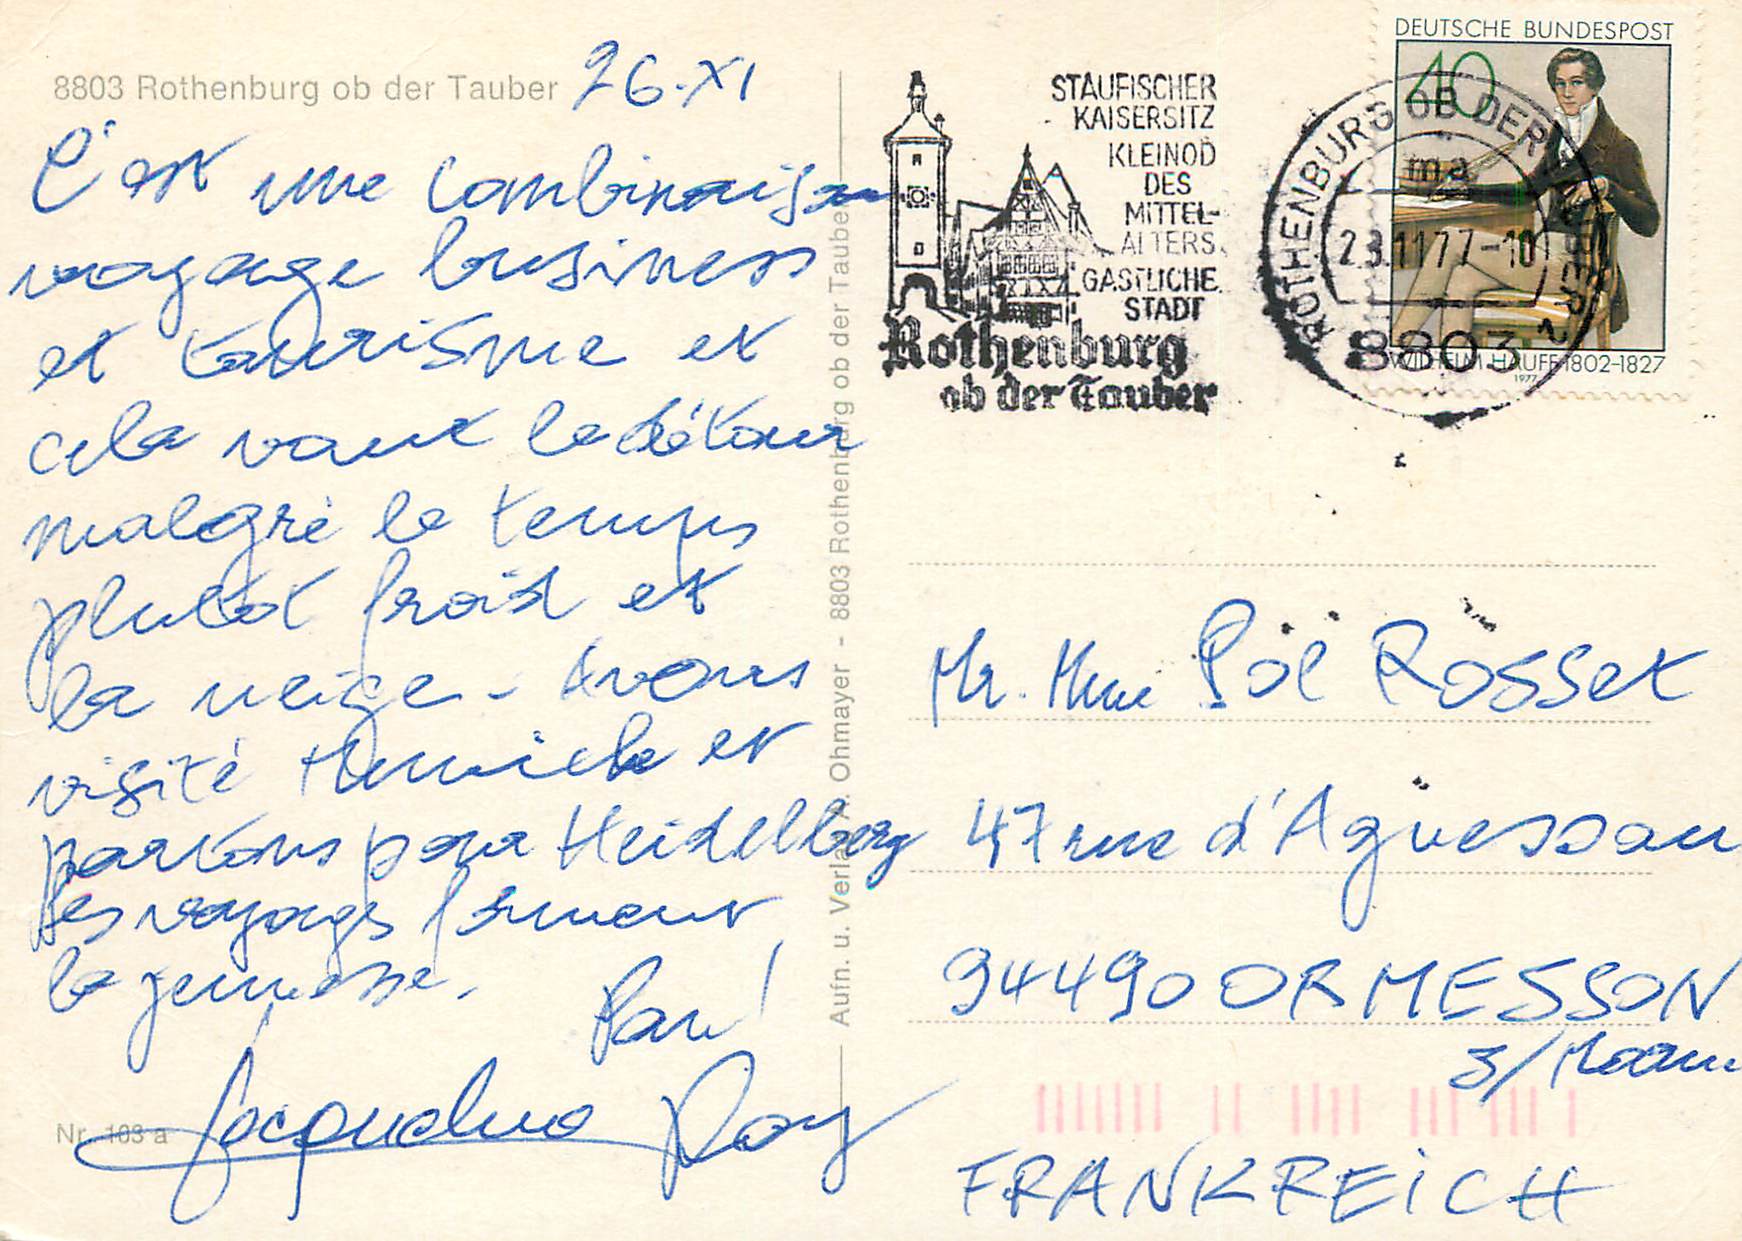 8803 Rothenburg ob der Tauber
26.XI
C'est une combinaison
voyage business
et tourisme et
cela vaut le détour
malgré le temps
plutôt froid et
la neige - Avons
visité Munich et
partons pour Heidelberg
Les voyages forment
la jeunesse.
Jacqueline Roy
Nr. 103 a
Aufn. u. Verlag Ohmayer - 8803 Rothenburg ob der Tauber
STAUFISCHER
KAISERSITZ
KLEINOD
DES
MITTEL-
ALTERS
GASTLICHE
STADT
Rothenburg
ob der Tauber
ROTHENBURG OB DER TAUBER 2
ma
23.11.77-10
8803
DEUTSCHE BUNDESPOST
40
WILHELM HAUFF 1802-1827
1977
Mr. Mme Pol Rosset
47 rue d'Aguesseau
94490 ORMESSON
s/Marne
FRANKREICH